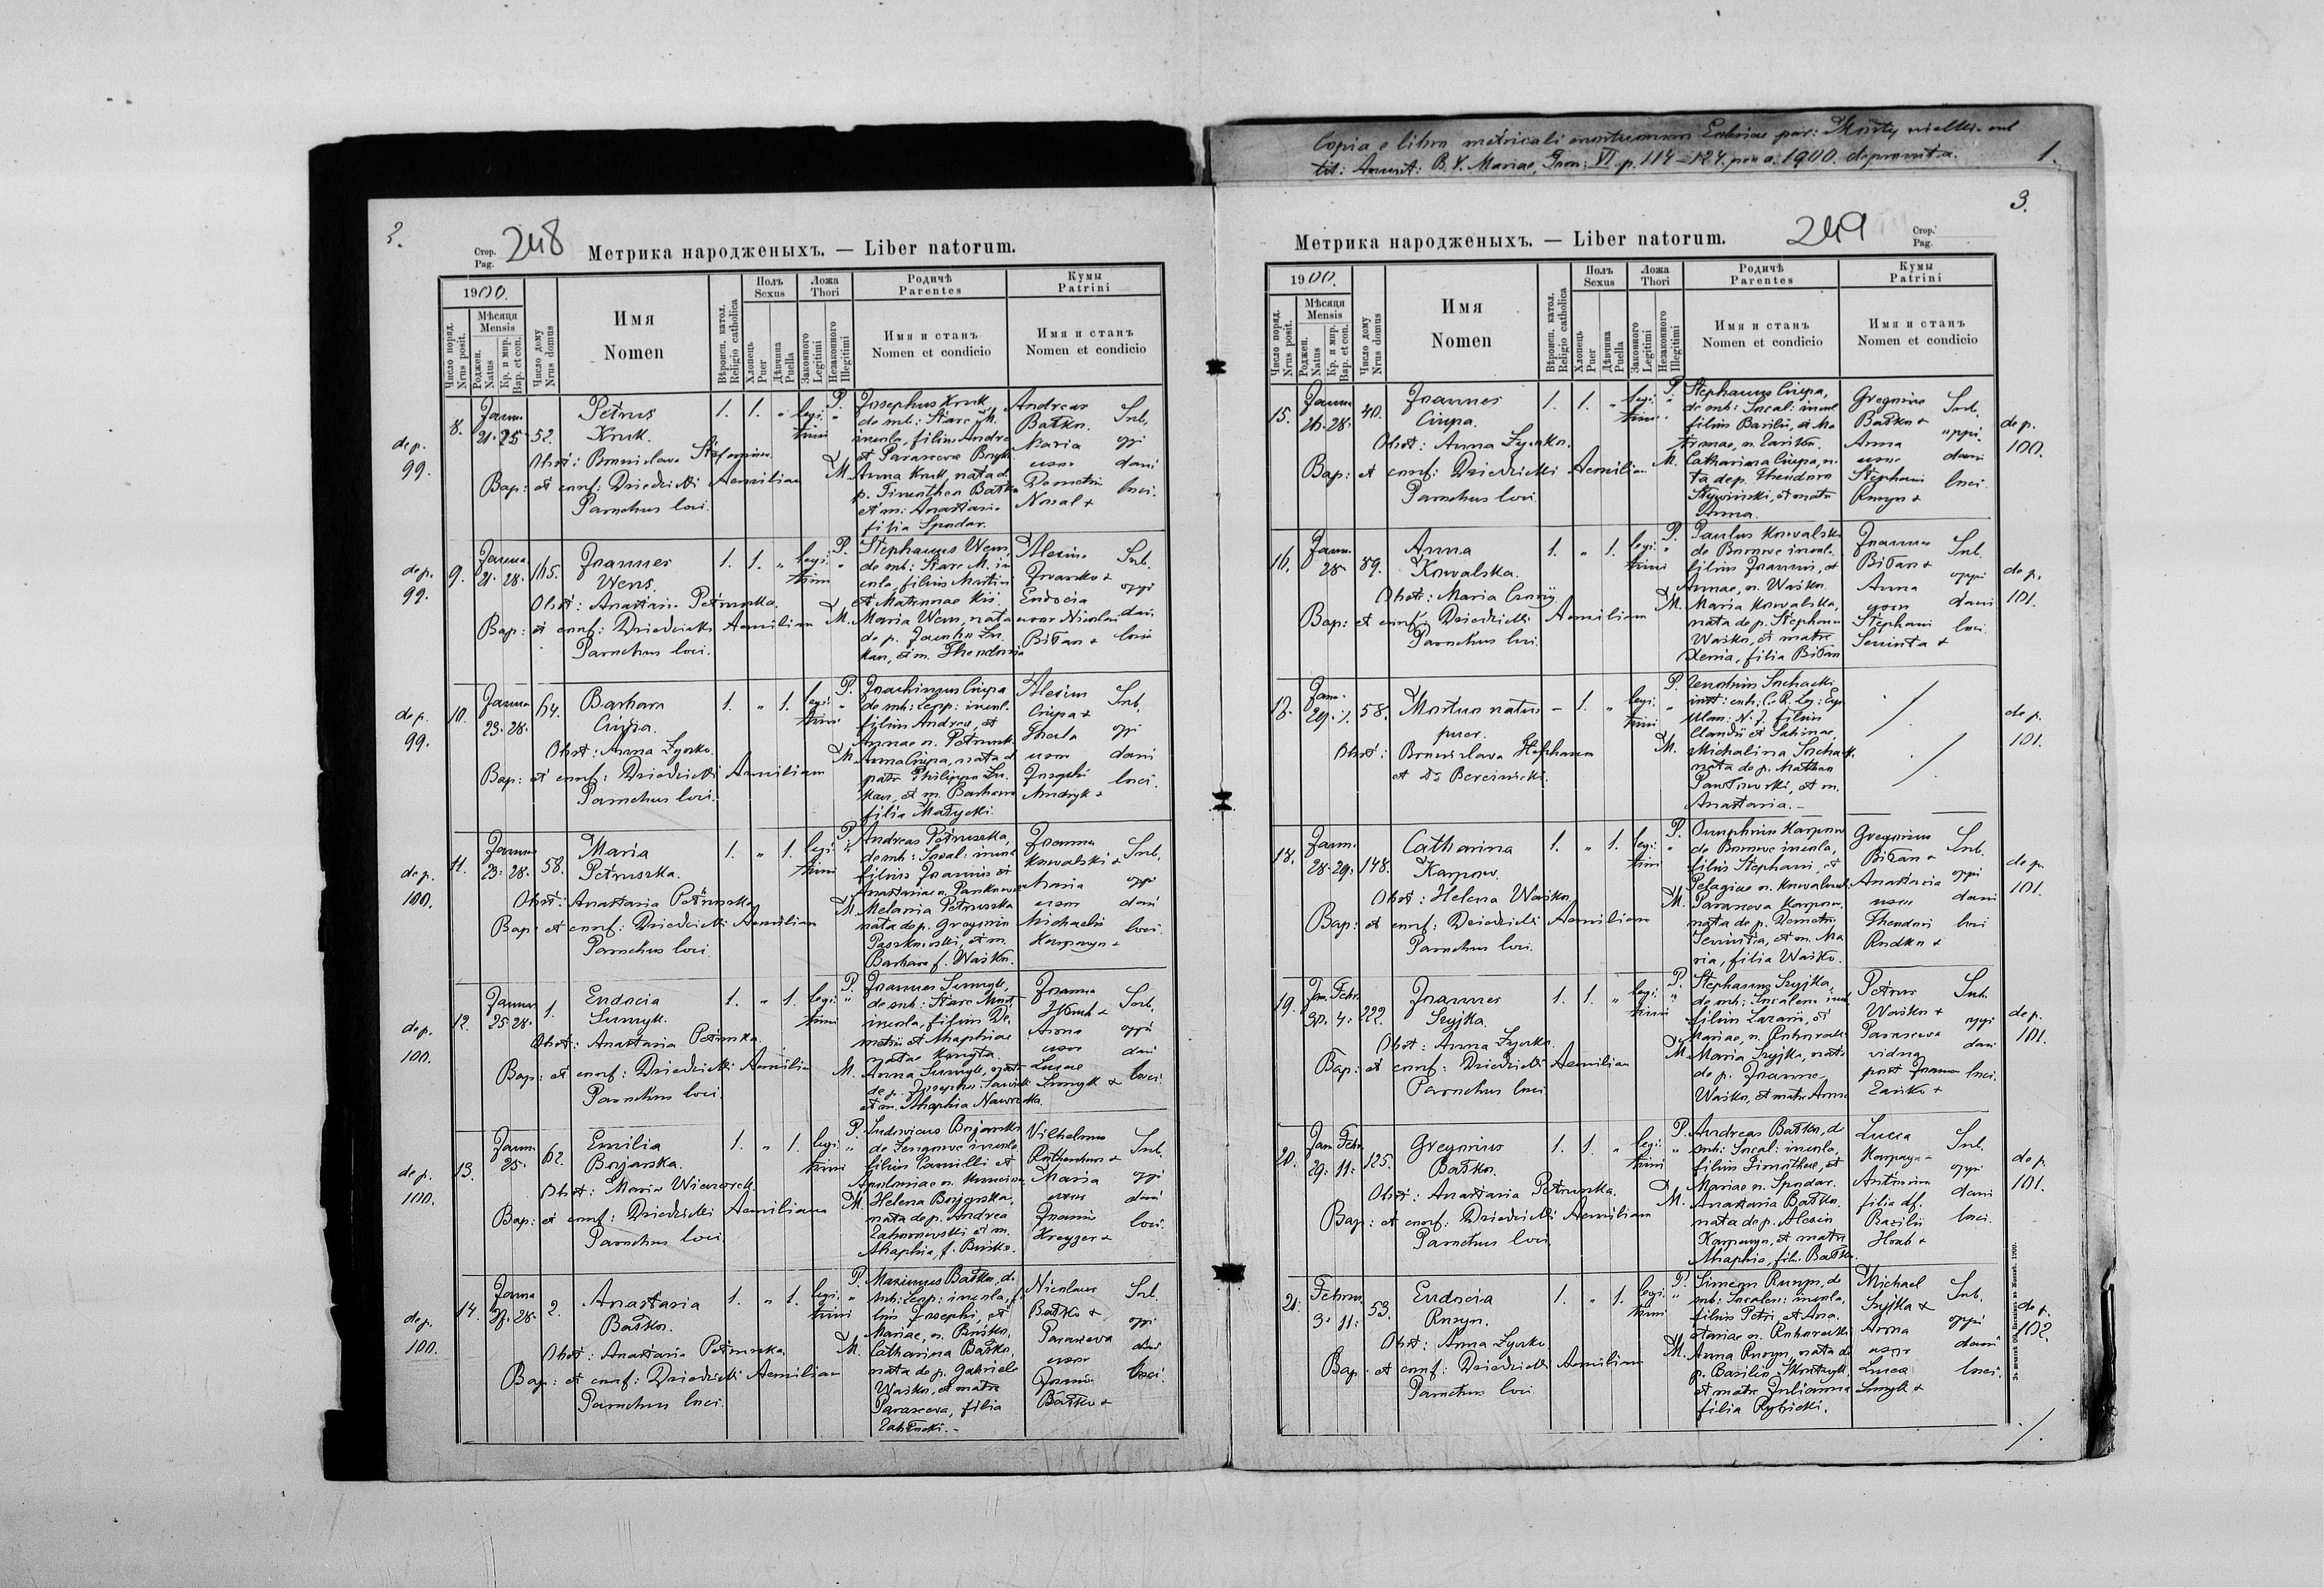 Copia e libro metricali mortuorum Ecclesiae par: Mosty wielkie sub
tit: Assumt: B. V. Mariae, Tom: VI. p. 114–124. pro a. 1900. deprompta.
1.
2.
Стор.
Pag.
248
Метрика народженыхъ. — Liber natorum.
1900.
Число поряд.
Nrus posit.
Мѣсяця
Mensis
Рожден.
Natus
Кр. и мир.
Bap. et con.
Число дому
Nrus domus
Имя
Nomen
Вѣроисп. катол.
Religio catholica
Полъ
Sexus
Хлопець
Puer
Дѣвчина
Puella
Ложа
Thori
Законного
Legitimi
Незаконного
Illegitimi
Родичѣ
Parentes
Имя и станъ
Nomen et condicio
Кумы
Patrini
Имя и станъ
Nomen et condicio
de p.
99.
8.
Janu.
21. 25.
52.
Petrus
Kruk.
1. 1. " legi: "
timi
Obst: Bronislava
Bap: et conf: Dziedzicki Aemilian
Parochus loci.
P. Josephus Kruk,
de sub: Stare M.
incola, filius Andre
et Parascevae
M. Anna Kruk, nata d
p. Timotheo Batko
et m: Anastasia
filia Spodar.
Andreas
Batko.
Maria
uxor
Demetrii
Nosal +
Sub.
oppi
dani
loci.
de p.
99.
9.
Janua
21. 28.
165.
Joannes
Wens.
1. 1. " legi: "
timi
Obst: Anastasia Petruszka.
Bap: et conf: Dziedzicki Aemilian
Parochus loci.
P. Stephanus Wens,
de sub: Stare M. in
cola, filius Martini
et Matronae Kis.
M. Maria Wens, nata
de p. Jacobo Lu
kan, et m. Theodosia
Alexius
Iwasko +
Eudocia
uxor Nicolai
Bitan +
Sub.
oppi
dani
loci
de p.
99.
10.
Janua
23. 28.
64.
Barbara
Ciupa.
1. " 1. legi: "
timi
Obst: Anna Zyorko.
Bap: et conf: Dziedzicki Aemilian
Parochus loci.
P. Joachimus Ciupa
de sub: Lepp: incol.
filius Andreae, et
Annae n. Petruszk
M. Anna Ciupa, nata d
patre Philippo Lu
kan, et m. Barbara
filia Matycki.
Alexius
Ciupa +
Thecla
uxor
Josephi
Andryk +
Sub.
oppi
dani
loci.
de p.
100.
11.
Janua
23. 28.
58.
Maria
Petruszka.
1. " 1. legi: "
timi
Obst: Anastasia Petruszka
Bap: et conf: Dziedzicki Aemilian
Parochus loci.
P. Andreas Petruszka,
de sub: Socal: incol
filius Joannis et
Anastasiae n. Pankowska
M. Melania Petruszka
nata de p. Gregorio
Paszkowski, et m.
Barbara f. Wasko.
Joannes
Kowalski +
Maria
uxor
Michaelis
Karpowyn +
Sub.
oppi
dani
loci.
de p.
100.
12.
Janua
25. 28.
1.
Eudocia
Sumyk.
1. " 1. legi: "
timi
Obst: Anastasia Petruszka.
Bap: et conf: Dziedzicki Aemilian
Parochus loci.
P. Joannes Sumyk,
de sub: Stare Miast.
incola, filius De
metrii et Ahaphiae
natae Kopyta.
M. Anna Sumyk, nata
de p. Josepho Sawicki
et m. Ahaphia Nawrocka.
Joannes
Hrab +
Anna
uxor
Lucae
Sumyk +
Sub.
oppi
dani
loci.
de p.
100.
13.
Janu.
25.
62.
Emilia
Bojarska.
1. " 1. legi: "
timi
Obst: Maria Wieczorek.
Bap: et conf: Dziedzicki Aemilian
Parochus loci.
P. Ludovicus Bojarski
de Zengowe incola
filius Camilli et
Apoloniae n.
M. Helena Bojarska,
nata de p. Andrea
Zahorowski et m.
Ahaphia, f. Busko.
Vilhelmus
Rothenburg +
Maria
uxor
Joannis
Kreyzer +
Sub.
oppi
dani
loci.
de p.
100.
14.
Janua
27. 28.
2.
Anastasia
Batko.
1. " 1. legi: "
timi
Obst: Anastasia Petruszka
Bap: et conf: Dziedzicki Aemilian
Parochus loci.
P. Maximus Batko, de
sub: Lepp: incola, fi
lius Josephi, et
Mariae, n. Busko.
M. Catharina Batko,
nata de p. Gabriele
Wasko, et matre
Parasceva, filia
Zabłocki.
Nicolaus
Batko +
Parasceva
uxor
Joannis
Batko +
Sub.
oppi
dani
loci.
3.
Метрика народженыхъ. — Liber natorum.
249
Стор.
Pag.
1900.
Число поряд.
Nrus posit.
Мѣсяця
Mensis
Рожден.
Natus
Кр. и мир.
Bap. et con.
Число дому
Nrus domus
Имя
Nomen
Вѣроисп. катол.
Religio catholica
Полъ
Sexus
Хлопець
Puer
Дѣвчина
Puella
Ложа
Thori
Законного
Legitimi
Незаконного
Illegitimi
Родичѣ
Parentes
Имя и станъ
Nomen et condicio
Кумы
Patrini
Имя и станъ
Nomen et condicio
15.
Janu
26. 28.
40.
Joannes
Ciupa.
1. 1. " legi: "
timi
Obst: Anna Zyorko.
Bap: et conf: Dziedzicki Aemilian
Parochus loci.
P. Stephanus Ciupa,
de sub: Socal: incol
filius Basilii, et Ma
tronae, n. Zanko.
M. Catharina Ciupa, n.
ta de p. Theodoro
et matre
Anna.
Gregorius
Batko +
Anna
uxor
Stephani
Rusyn +
Sub.
oppi
dani
loci.
de p.
100.
16.
Janu.
28.
89.
Anna
Kowalska.
1. " 1. legi: "
timi
Obst: Maria Czorny
Bap: et conf: Dziedzicki Aemilian
Parochus loci.
P. Paulus Kowalski
de Borowe incola.
filius Joannis, et
Annae, n. Wasko.
M. Maria Kowalska,
nata de p. Stephano
Wasko, et matre
Xenia, filia Bitan
Joannes
Bitan +
Anna
uxor
Stephani
Sewinta +
Sub.
oppi
dani
loci.
de p.
101.
17.
Janu.
29. %
58.
Mortuo natus
puer.
– 1. " legi: "
timi
Obst: Bronislava
et Dr Bercinicki.
P. Zenobius Suchacki
filius
Claudii et Sabinae,
M. Michalina Suchack.
nata de p. Mathaeo
Pawłowski, et m.
Anastasia. –
de p.
101.
18.
Janu.
28. 29.
148.
Catharina
Karpow.
1. " 1. legi: "
timi
Obst: Helena Wasko.
Bap: et conf: Dziedzicki Aemilian
Parochus loci.
P. Onuphrius Karpow
de Borowe incola,
filius Stephani, et
Pelagiae n. Kowalczuk.
M. Parasceva Karpow.
nata de p. Demetrio
Sewinta, et m. Ma
ria, filia Wasko.
Gregorius
Bitan +
Anastasia
uxor
Theodori
Rudko +
Sub.
oppi
dani
loci
de p.
101.
19.
Jan. Febr.
30. 4.
222.
Joannes
Szyjka.
1. 1. " legi: "
timi
Obst: Anna Zyorko.
Bap: et conf: Dziedzicki Aemilian
Parochus loci
P. Stephanus Szyjka,
de sub: Socalen: incol
filius Lazarii, et
Mariae, n.
M. Maria Szyjka, nata
de p. Joanne
Wasko, et matre Anna
Petrus
Wasko +
Parasceva
vidua
post Joannem
Zanko +
Sub.
oppi
dani
loci.
de p.
101.
20.
Jan. Febr.
29. 11.
125.
Gregorius
Batko.
1. 1. " legi: "
timi
Obst: Anastasia Petruszka.
Bap: et conf: Dziedzicki Aemilian
Parochus loci.
P. Andreas Batko, de
sub: Socal: incola,
filius Timothei, et
Mariae n. Spodar.
M. Anastasia Batko,
nata de p. Alexio
Karpowyn, et matre
Ahaphia, filia Batko.
Lucca
Karpaga –
Antonina
filia df.
Bazilii
Hrab +
Sub.
oppi
dani
loci.
de p.
101.
21.
Febru.
3. 11.
53.
Eudocia
Rusyn.
1. " 1. legi: "
timi
Obst: Anna Zyorko
Bap: et conf: Dziedzicki Aemilian
Parochus loci.
P. Simeon Rusyn, de
sub: Socalen: incola,
filius Petri, et Ana
stasiae n.
M. Anna Rusyn, nata de
p. Basilio
et matre Julianna
filia Rybicki.
Michael
Szyjka +
Anna
uxor
Lucca
Sumyk +
Sub.
oppi
dani
loci.
de p.
102.